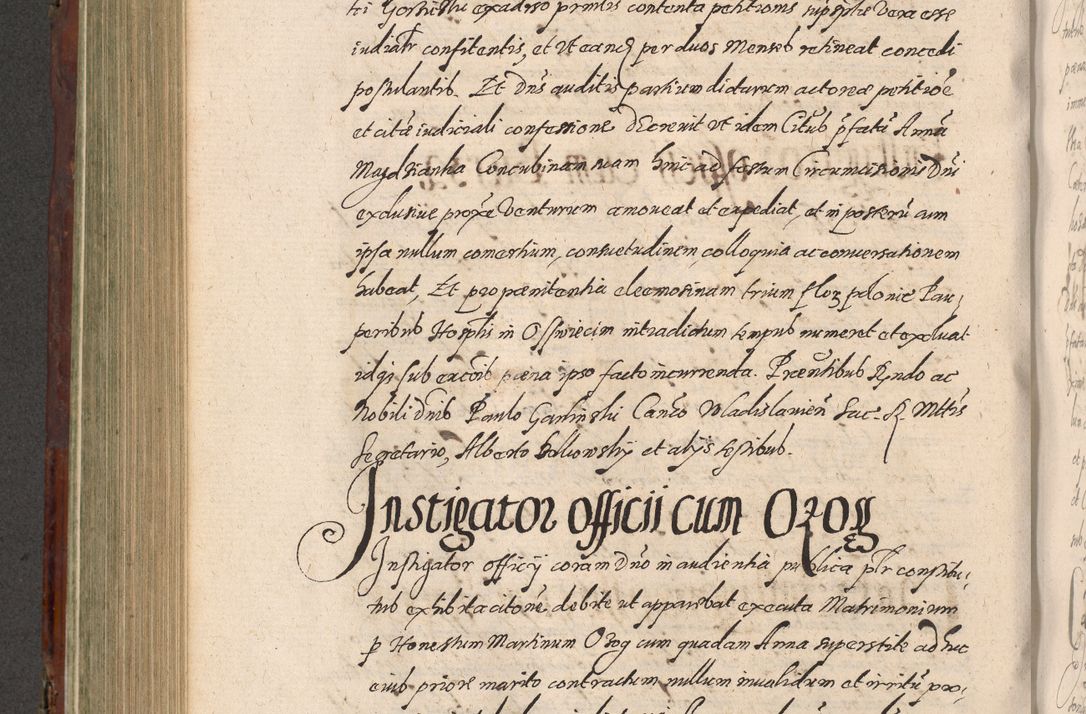 ti Gorkistu exadiso primis contenta petitionis sup̃sptis vera esse
iudialr̃ confitentis, et ut eand̃ per duos Menses retineat concedi
postulantis. Et Dn̄s auditis partium dictarum actoreæ petitiōe
et citā iudiciali confessione decrevit ut idem Citus p̄fatā Annā
Concubinam suam hinc ad festum Circumcisionis Dn̄i
exclusive proxē venturum amoveat et expediat, et in posterū cum
ipsa nullum comertium, consuetudinem, colloquia ac conversationem
habeat, Et pro pænitentia eleemosinam trium floz polonic Pau,
peribus Hospĩtl in Osswiecim intra dictum tempus numeret et exolvat
idq; sub exc̄ois pæna ipso facto incurrenda. Præntibus Rndo ac
Nobili dn̄is Paulo Can̄co Vladislavien̄ Sac. R. Mttis
Secretario, Alberto et alys testibus.
Instigator officii cum Ozog
Instigator officy coram Dn̄o in audientia publica pl̄r constitu,
tus exhibita citōne debite ut apparebat executa Matrimonium
p Honestum Martinum Ozog cum quadam Anna superstite adhuc
eius priore marito contractum nullum invalidum et irritū pro,